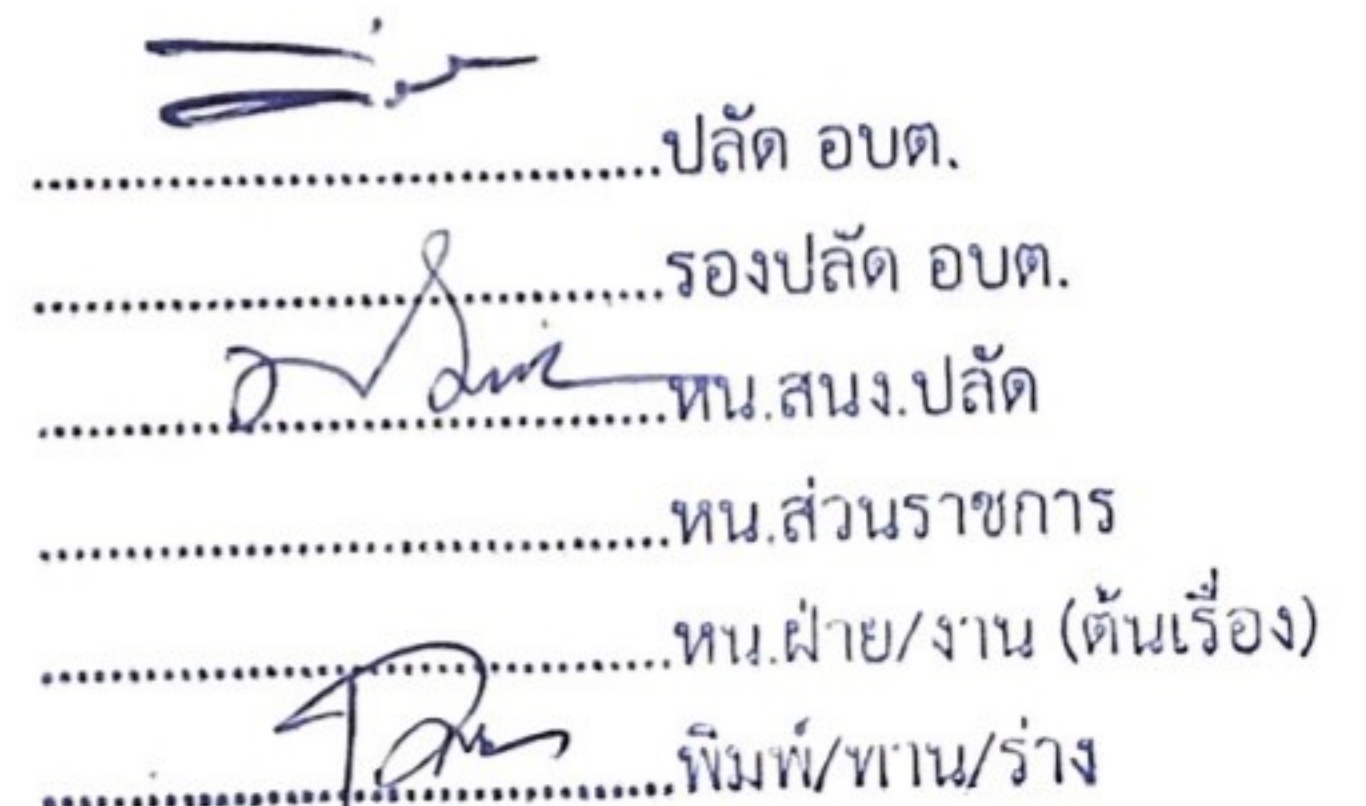 ....................................ปลัด อบต.
....................................รองปลัด อบต.
....................................หน.สนง.ปลัด
....................................หน.ส่วนราชการ
....................................หน.ฝ่าย/งาน (ต้นเรื่อง)
....................................พิมพ์/ทาน/ร่าง